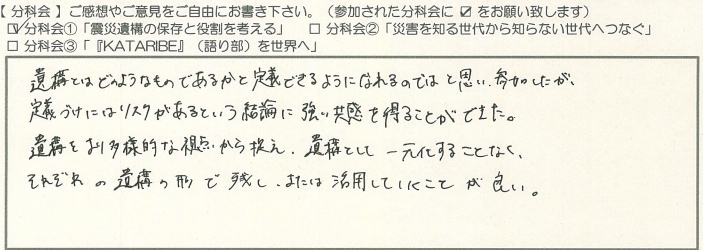 【 分科会 】ご感想やご意見をご自由にお書き下さい。（参加された分科会に ☑ をお願い致します）
☑ 分科会①「震災遺構の保存と役割を考える」　□ 分科会②「災害を知る世代から知らない世代へつなぐ」
□ 分科会③「『KATARIBE』（語り部）を世界へ」
遺構とはどのようなものであるかと定義できるようになれるのではと思い、参加したが、
定義づけにはリスクがあるという結論に強い共感を得ることができた。
遺構をより多様的な視点から捉え、遺構として一元化することなく、
それぞれの遺構の形で残し、または活用していくことが良い。